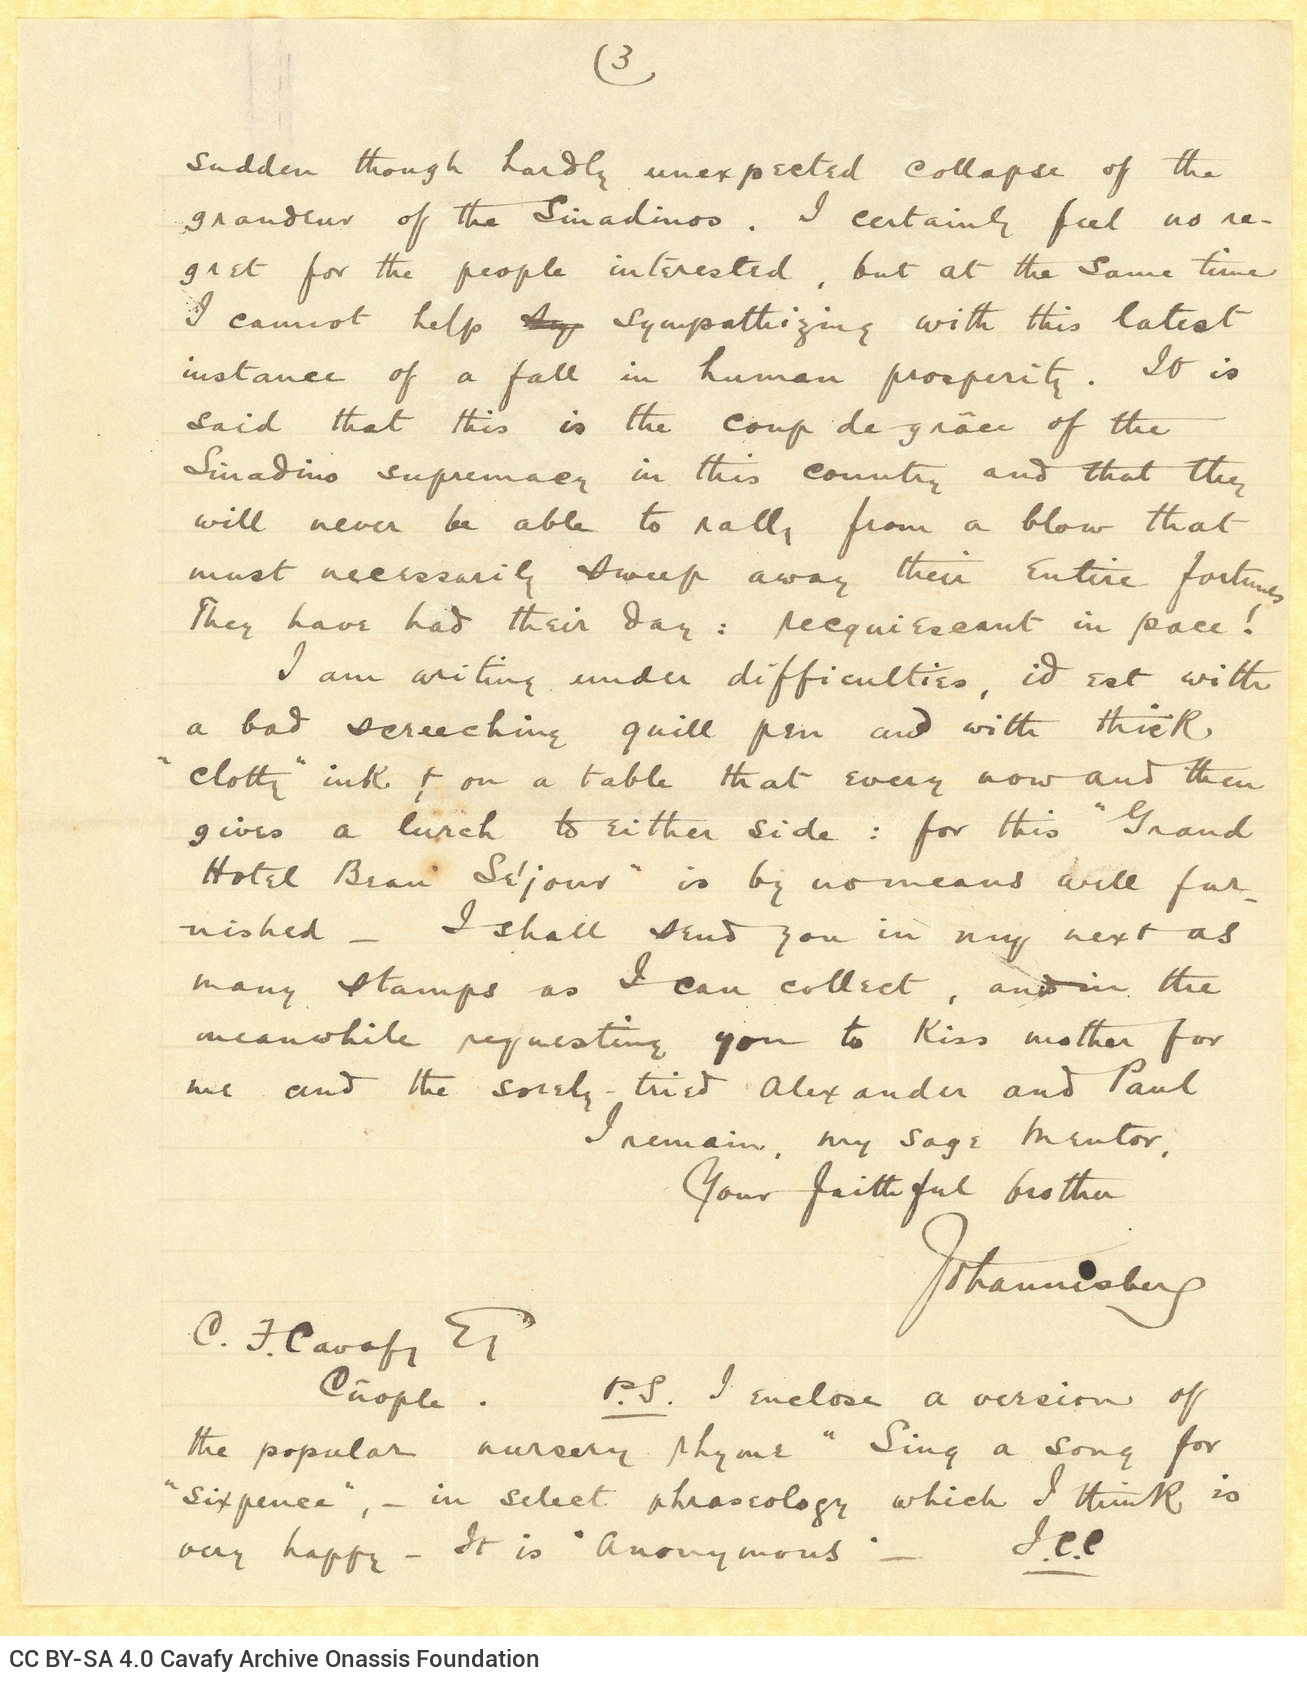 (3
sudden though hardly unexpected collapse of the
grandeur of the Sinadinos. I certainly feel no re-
gret for the people interested, but at the same time
I cannot help sy sympathizing with this latest
instance of a fall in human prosperity. It is
said that this is the coup de grâce of the
Sinadino supremacy in this country and that they
will never be able to rally from a blow that
must necessarily sweep away their entire fortunes
They have had their day: recquiescant in pace!
I am writing under difficulties, id est with
a bad screeching quill pen and with thick
"clotty" ink & on a table that every now and then
gives a lurch to either side: for this "Grand
Hotel Beau Séjour" is by no means well fur-
nished - I shall send you in my next as
many stamps as I can collect, and in the
meanwhile requesting you to kiss mother for
me and the sorely-tried Alexander and Paul
I remain, my sage Mentor,
Your faithful brother
Johannisberg
C. F. Cavafy Esq
C'nople. P.S. I enclose a version of
the popular nursery rhyme "Sing a song for
"sixpence", - in select phraseology which I think is
very happy - It is "Anonymous" - J.C.C
CC BY-SA 4.0 Cavafy Archive Onassis Foundation